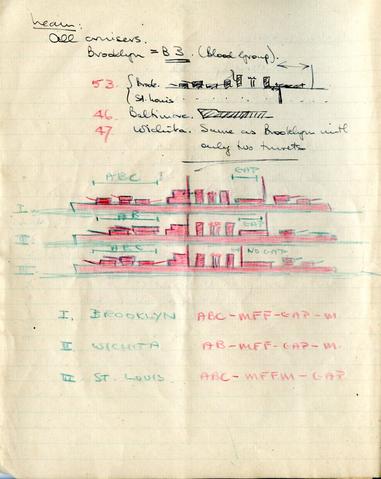 Learn:
All cruisers.
Brooklyn = B 3. (Blood Group).
53. { Brook.
{ St. Louis
46 Baltimore.
47 Wichita. Same as Brooklyn with
only two turrets
ABC GAP
I.
AB GAP
II.
ABC NO GAP
III.
I. BROOKLYN ABC - MFF - GAP - M.
II WICHITA AB - MFF - GAP - M.
III ST. LOUIS. ABC - MFFM - GAP.